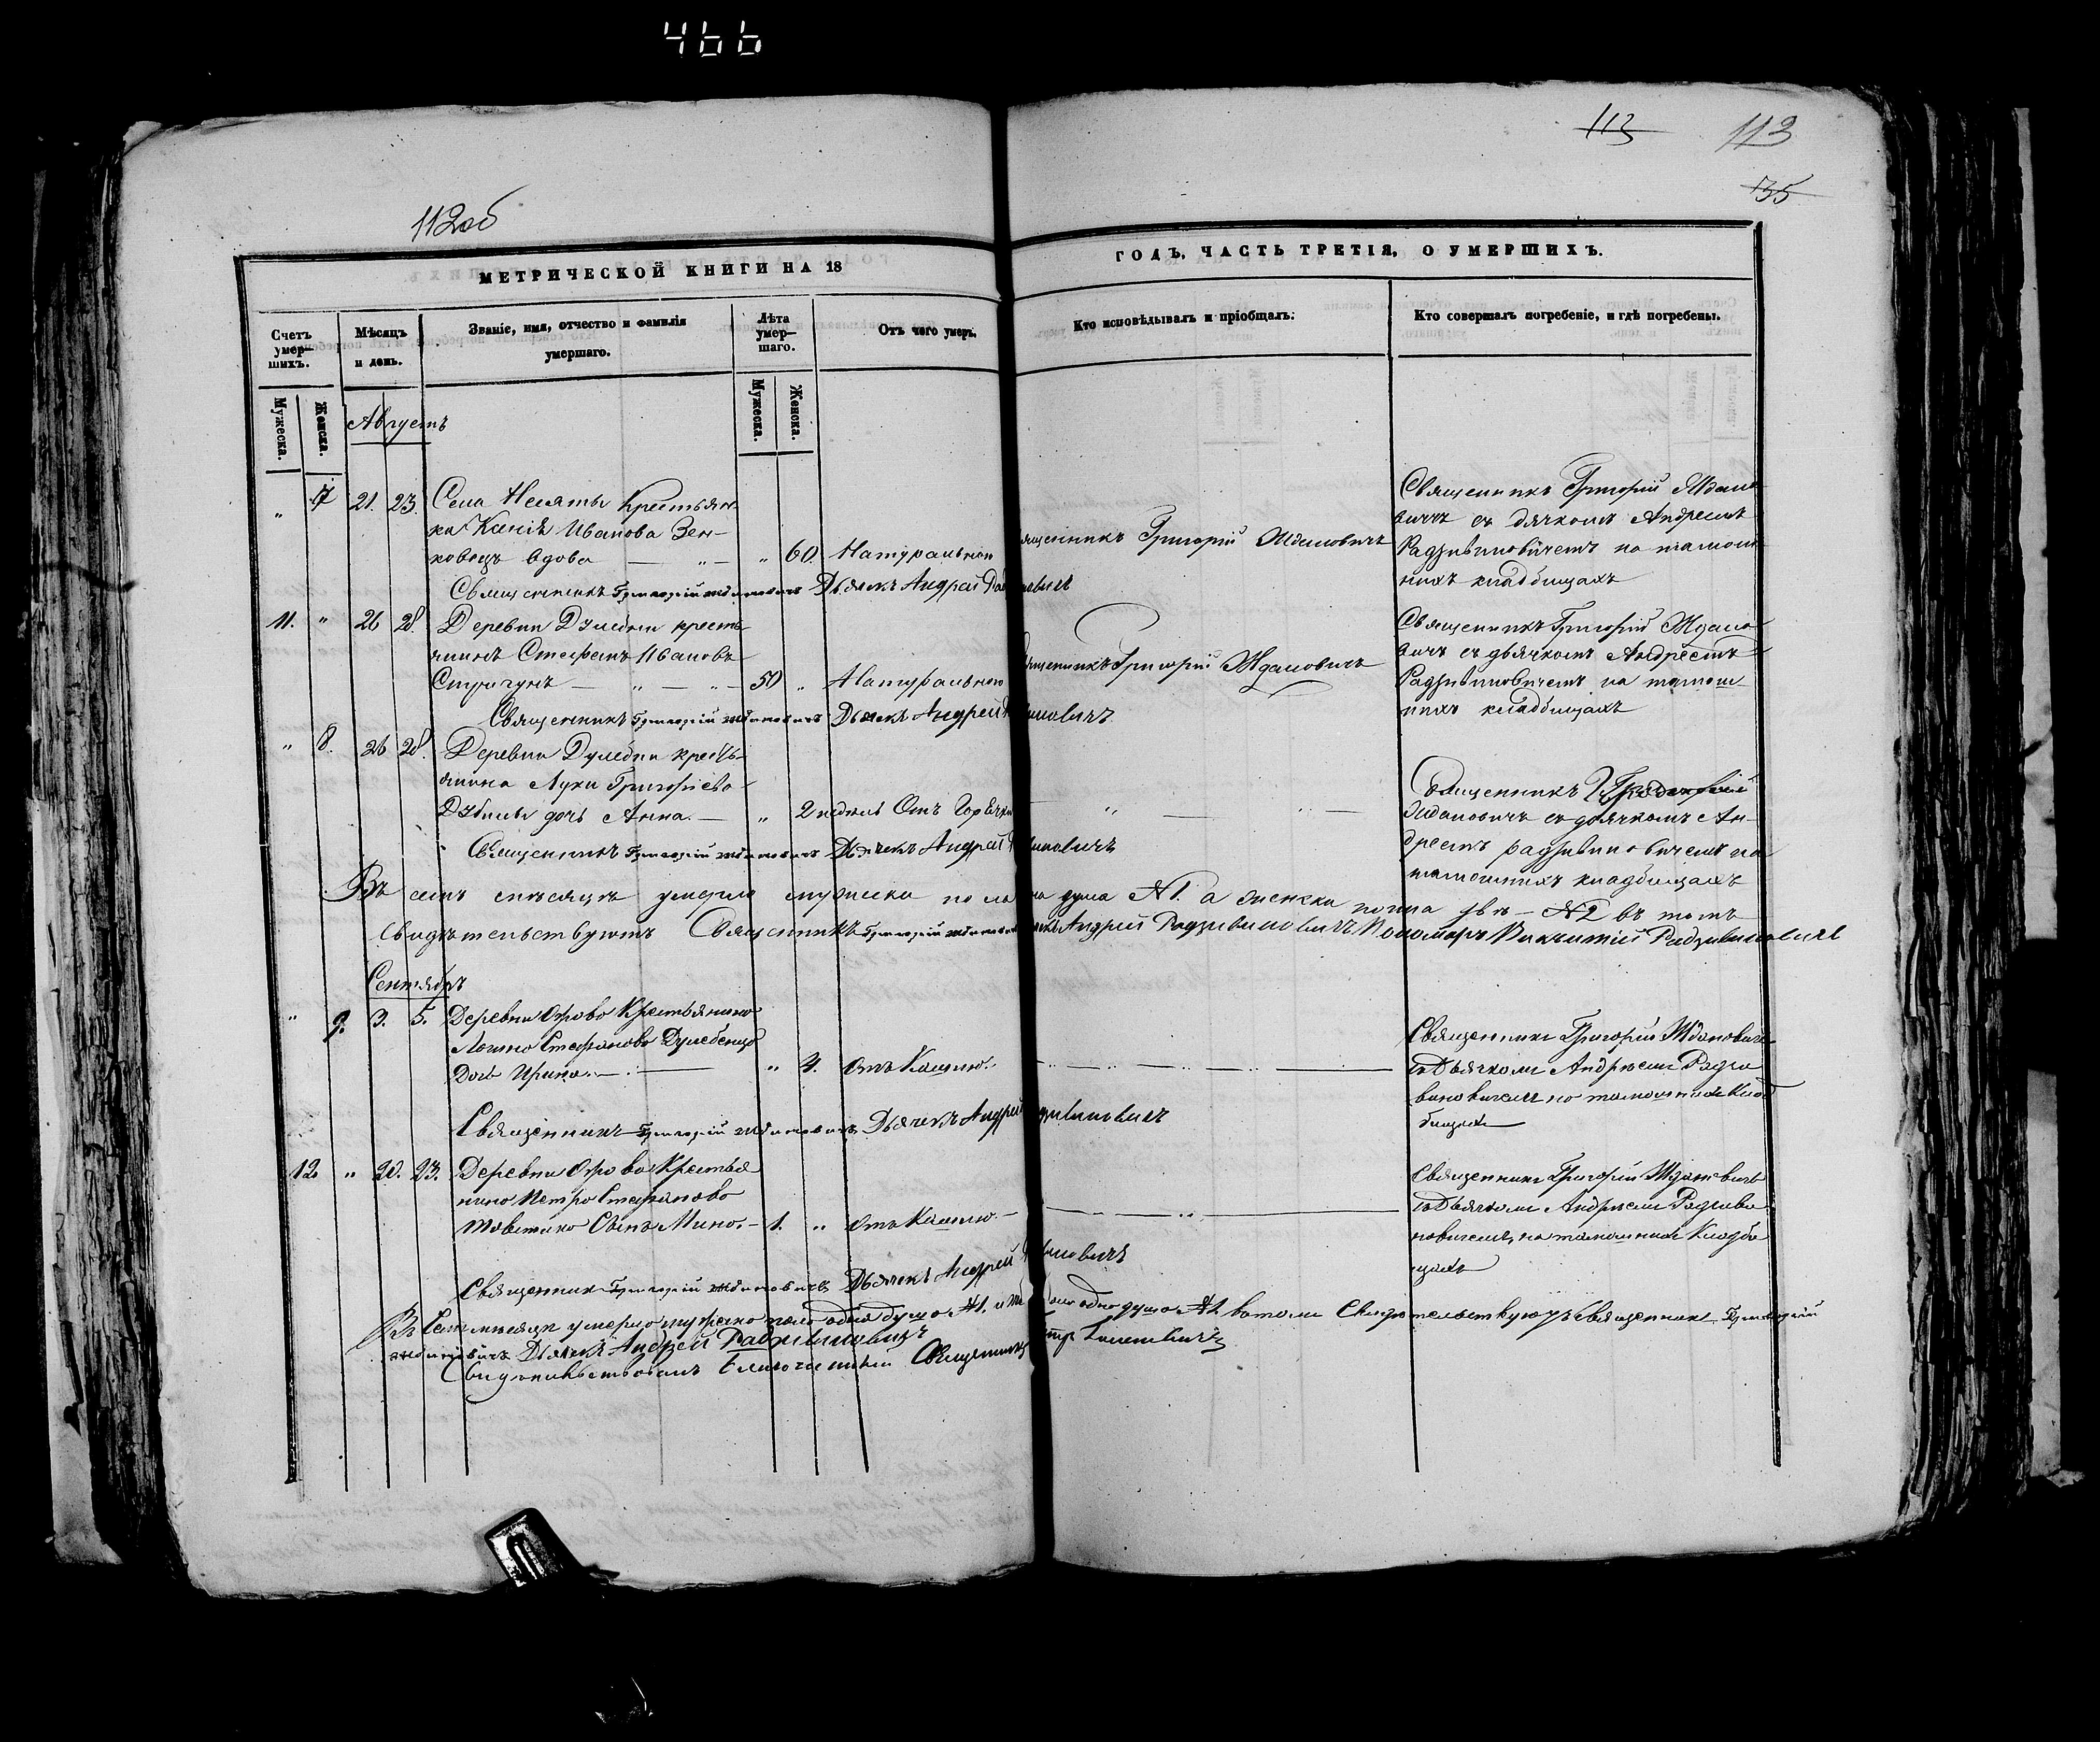 466
113
113
35
112об
МЕТРИЧЕСКОЙ КНИГИ НА 18 ГОДЪ, ЧАСТЬ ТРЕТІЯ, О УМЕРШИХЪ.
Счетъ умер—шихъ.
Мѣсяцъ и день.
Званіе, имя, отчество и фамилія умершаго.
Лѣта умер—шаго.
Отъ чего умеръ.
Кто исповѣдывалъ и пріобщалъ.
Кто совершалъ погребеніе, и гдѣ погребены.
Мужеска.
Женска.
Мужеска.
Женска.
Августъ
" 7 21. 23. Села Неляты Крестьян-
ка Ксенія Иванова Зен-
ковецъ вдова — " — " 60. Натурально
Священникъ Григорій Ждановичъ
Священникъ Григорій Ждано
вичъ съ дячкомъ Андреемъ
Радзивиновичемъ на тамош
нихъ кладбищахъ
Священникъ Григорій Ждановичъ Дьячекъ Андрей
11. " 26 28. Деревни Дулебни кресть
янинъ Стефанъ Ивановъ
Стригунъ — " — " — 50 " Натурально
Григорій Ждановичъ
Священникъ Григорій Ждано
вичъ съ дьячкомъ Андреемъ
Радзивиновичемъ на тамош—
нихъ кладбищахъ
Священникъ Григорій Ждановичъ Дьячекъ Андрей
" 8. 26 28. Деревни Дулебни кресть-
янина Луки Григоріева
дочь Анна. — " 2 недель Отъ Горячки — " — " —
Священникъ
Ждановичъ съ дьячкомъ Ан-
дреемъ Радзивиновичемъ на
тамошнихъ кладбищахъ
Священникъ Григорій Ждановичъ Дьячекъ Андрей
Въ семъ месяцѣ умерло мужеска пола одна душа №1. а женска пола двѣ — №2 въ томъ
свидѣтельствуютъ Священникъ Григорій Ждановичъ Андрей Радзивиновичъ Пономарь Радзивиновичъ
Сентябрь
" 9. 3. 5. Деревни Острово Крестьянина
Стефанова
Дочь Ирина. — " 4. отъ Кашлю.
Священникъ Григорій Ждановичъ
съ Дьячкомъ Андреемъ Радзи
виновичемъ на тамошнихъ Клад
бищахъ
Священникъ Григорій Ждановичъ Дьячекъ Андрей
12. " 20. 23. Деревни Острово Крестья
нина Петра Стефанова
Сынъ Мина. — 1. " отъ Кашлю. —
Священникъ Григорій Ждановичъ
съ Дьячкомъ Андреемъ Радзиви
новичемъ, на тамошнихъ Кладби
щахъ
Священникъ Григорій Ждановичъ Дьячекъ Андрей
Въ Семъ месяцѣ умерло мужеска пола одна душа №1. одна душа №1. въ томъ Свидѣтельствуютъ Священникъ Григорій
Ждановичъ Дьячекъ Андрей Радзивиновичъ
Свидѣтельствовалъ Благочинный Священникъ